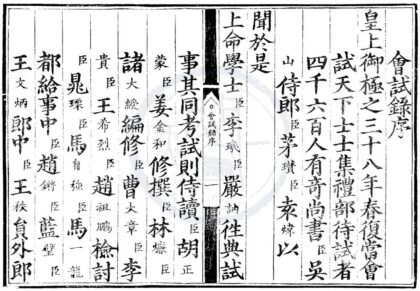 會試錄序
皇上御極之三十八年春復當會
試天下士士集禮部待試者
四千六百人有奇尚書臣吳
山侍郎臣茅瓚臣袁煒以
聞於是
上命學士臣李璣臣嚴訥往典試
會試錄序
一
事其同考試則侍讀臣胡正
蒙臣姜金和修撰臣林燫臣
諸大綬編修臣曹大章臣李
貴臣王希烈臣趙祖鵬檢討
臣晁瑮臣馬自強臣馬一龍
都給事中臣趙鏘臣藍璧臣
王文炳郎中臣王秩員外郎